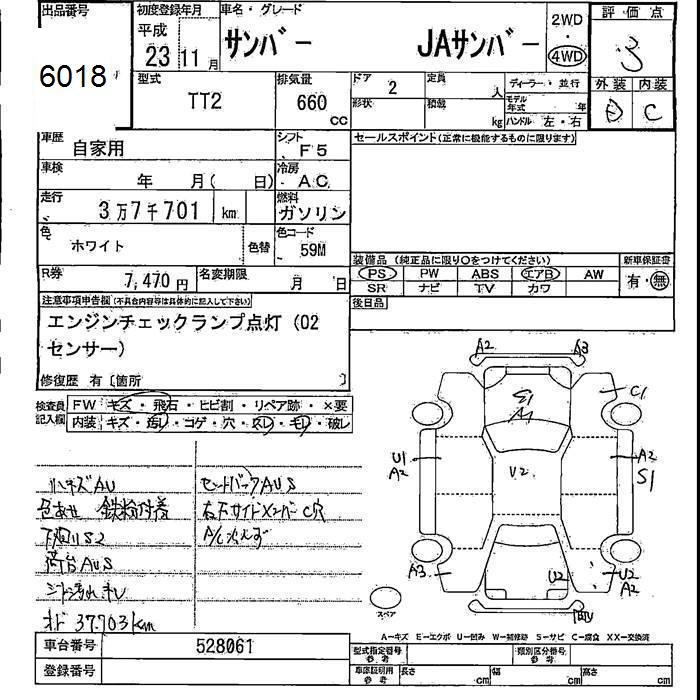 出品番号 初度登録年月 車名・グレード 2WD 評価点
6018 平成 23 11月 サンバー JAサンバー 4WD 3
型式 排気量 ドア 定員 ディーラー・並行 外装 内装
TT2 660 cc 2 人 形状 積載 kg モデル年式 年 ハンドル 左・右 D C
車歴 自家用 シフト F5 セールスポイント(正常に機能するものに限ります)
車検 年 月( 日) 冷房 AC
走行 3万7千701 km 燃料 ガソリン
色 ホワイト 色替 色コード 59M
装備品 (純正品に限り○をつけてください) 新車保証書
PS PW ABS エアB AW 有・無
SR ナビ TV カワ
R券 7,470円 名変期限 月 日
後日品
注意事項申告欄(不具合内容等は具体的に記入して下さい)
エンジンチェックランプ点灯(O2
センサー)
修復歴 有〔箇所 〕
検査員記入欄 FW キズ・飛石・ヒビ割・リペア跡・×要
内装 キズ・汚レ・コゲ・穴・スレ・モレ・破レ
A2 A3
C1
A1
U1 A2
U2
A2 S1
A3
U2
U2 A2
スペア
ハネズAU
色あせ 鉄粉付着
下廻りS2
荷台AUS
シート汚れ キレ
オド 37.703km
セートバックAUS
右下サイドメンバーC穴
A/C冷えず
A―キズ E―エクボ U―凹み W―補修跡 S―サビ C―腐食 XX―交換済
車台番号 528061 型式指定番号 参考 類別区分番号 参考
登録番号 車庫証明用 参考 長さ cm 幅 cm 高さ cm